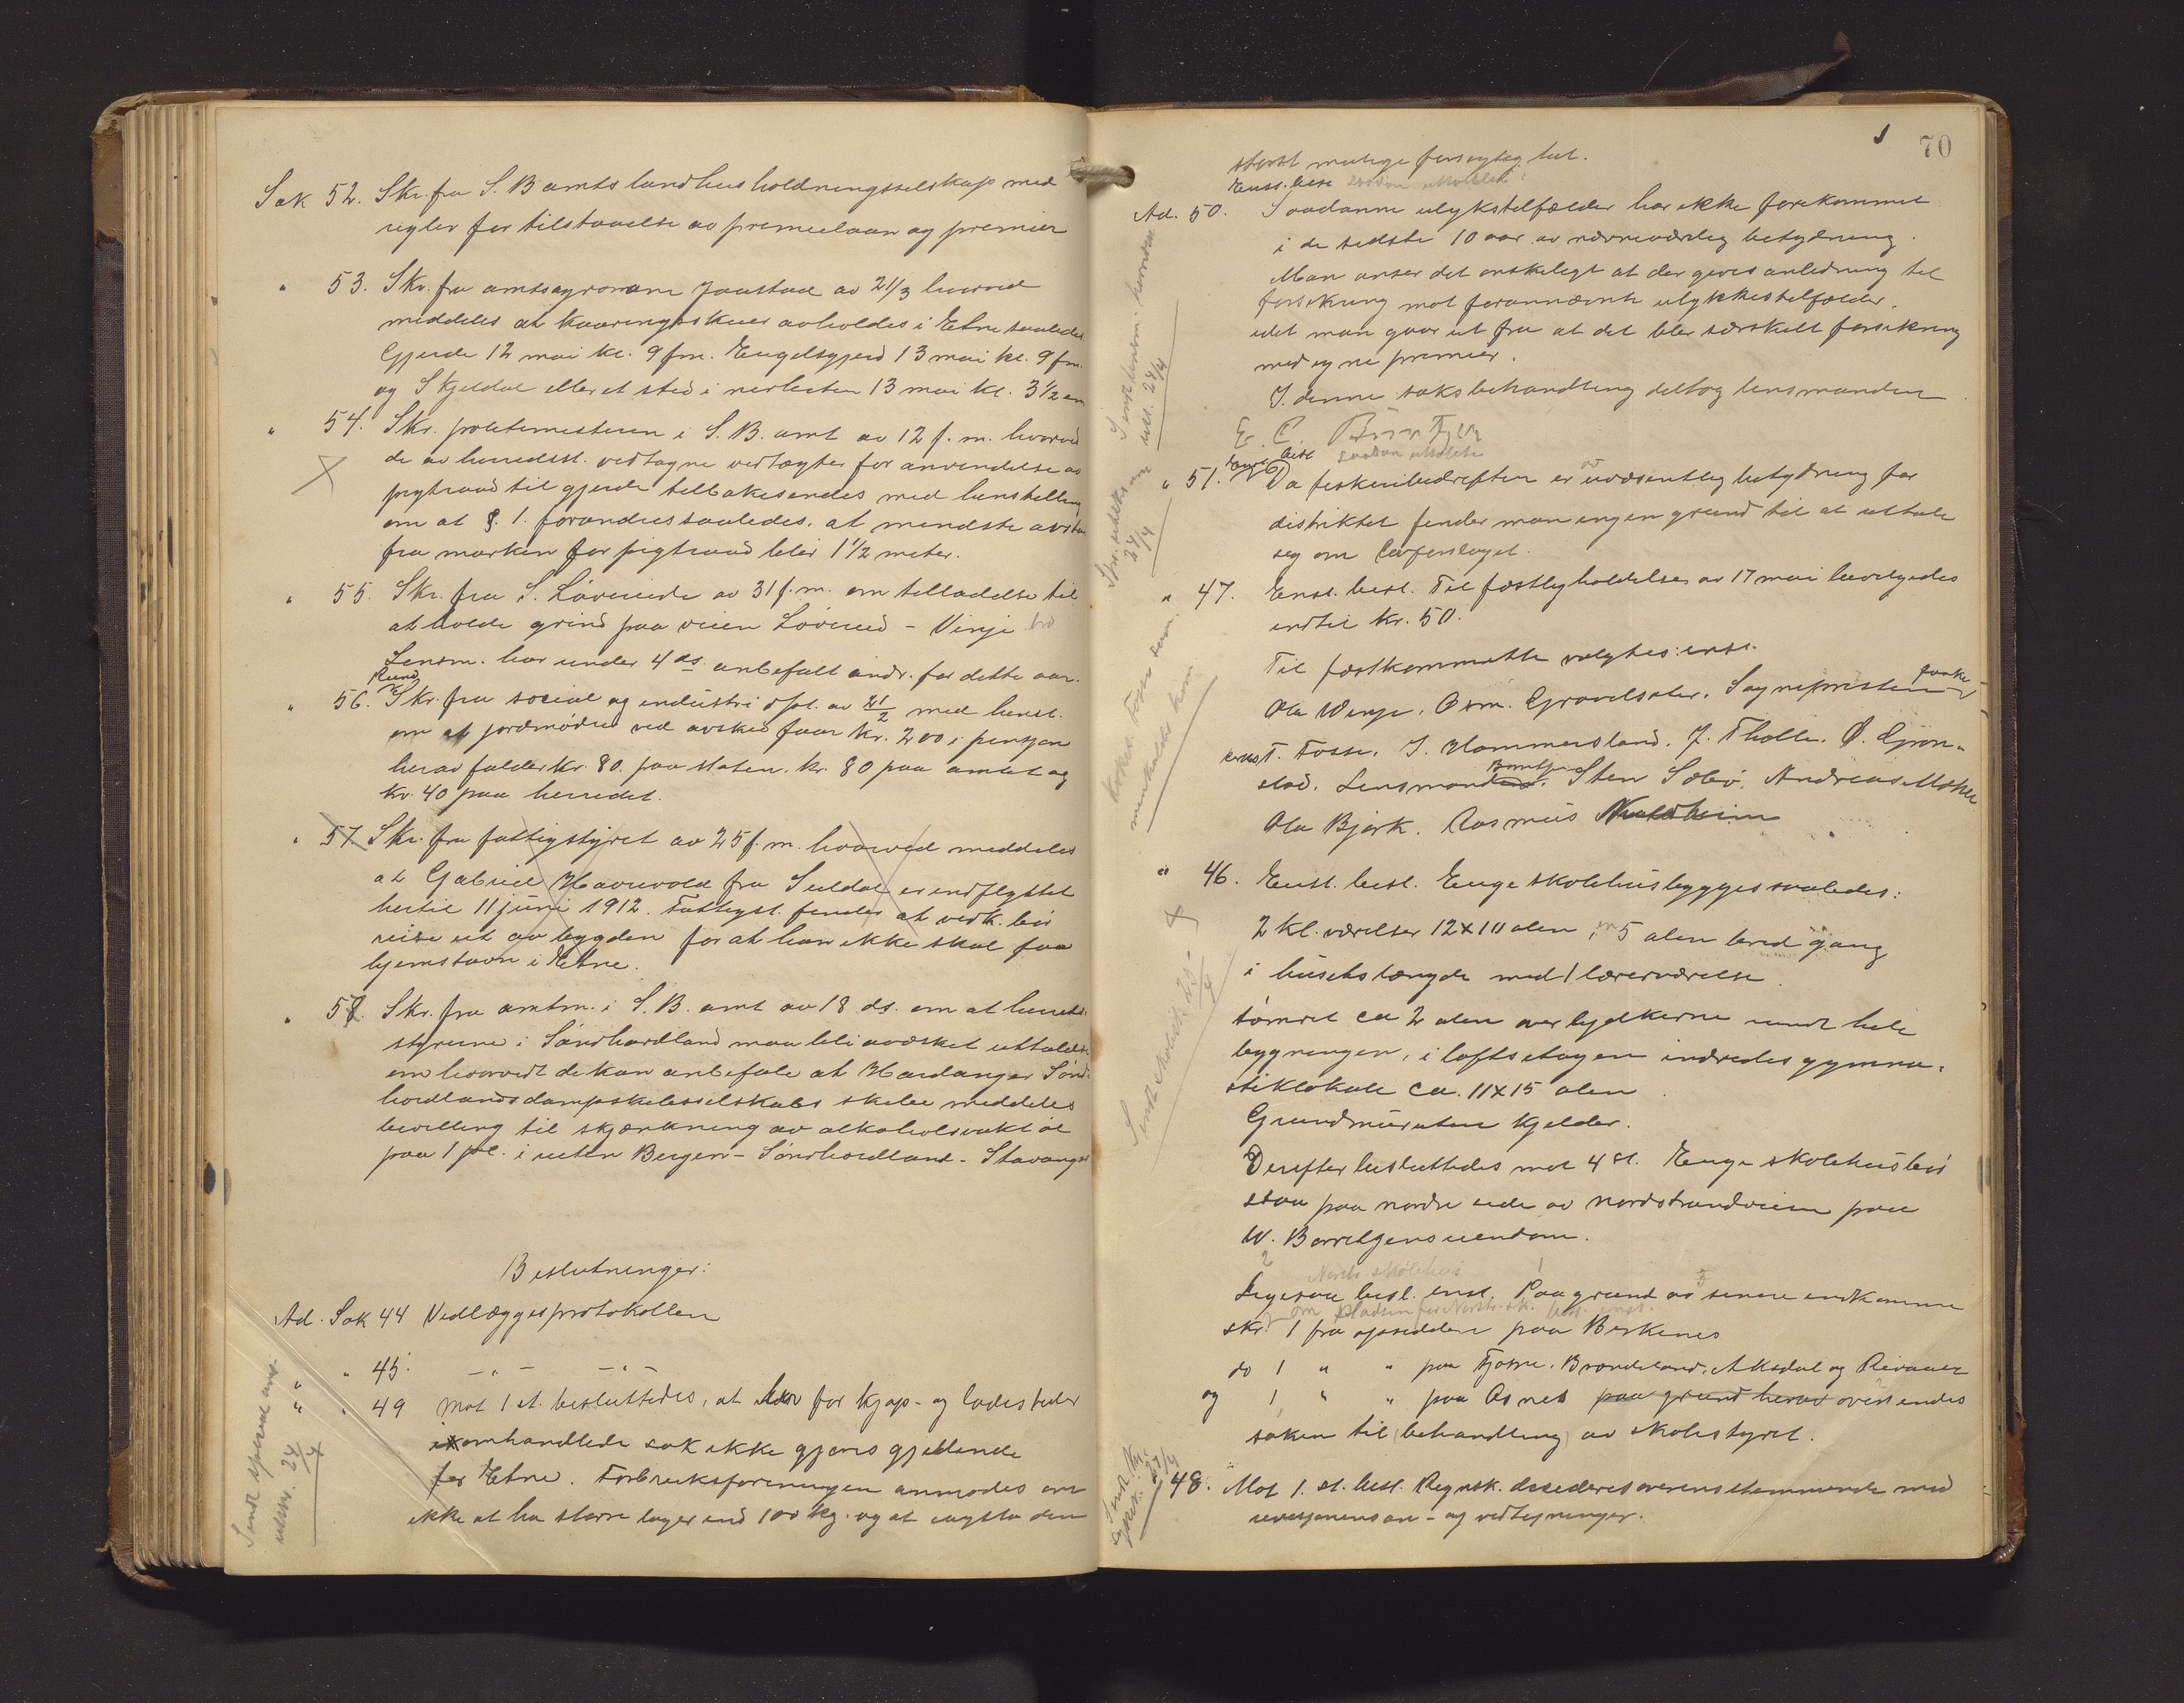 Sak 52. Skr. fra S. B amts landhusholdningsselskap med
regler for tilstaaelse av premielaan og premier
" 53. Skr. fra amtsagronom Jaastad av 21/3 hvorved
meddeles at kaaringsskuer avholdes i Etne saaledes
Gjerde 12 mai kl. 9 fm. Engelsgjerd 13 mai kl. 9 fm.
og Skjeldal eller et sted i nærheten 13 mai kl. 3 1/2 em
" 54. Skr. politimesteren i S. B. amt av 12 f. m. hvorved
de av herredsst. vedtagne vedtægter for anvendelse av
pigtraad til gjerde tilbakesendes med henstilling
om at §. 1. forandres saaledes, at mindste avstan
fra marken for pigtraad blir 1 1/2 meter.
" 55. Skr. fra S. Løvereide av 31 f. m. om tilladelse til
at holde grind paa veien Løvereid - Vinje
Lensm. har under 4 ds. anbefalt andr. for dette aar.
Rund
" 56. Skr. fra social og industri dpt. av 21/2 med henst.
om at jordmødre ved avsked faar kr. 200 i pensjon
herav falder kr. 80. paa staten. kr. 80 paa amtet og
kr. 40 paa herredet.
" 57 Skr. fra fattigstyret av 25 f. m. hvorved meddeles
at Gabriel Havrevold fra Suldal er indflyttet
hertil 11 juni 1912. Fattigst. finder at vedk. bør
reise ut av bygden for at han ikke skal faa
hjemstavn i Etne.
" 58. Skr. fra amtm. i S. B. amt av 18 ds. om at herreds-
styrerne i Søndhordland maa bli avæsket uttalelse
om hvorvidt de kan anbefale at Hardanger Sønd-
hordlands dampskibsselskabs skibe meddeles
bevilling til skjænkning av alkoholsvakt øl
paa 1 pl. i ruten Bergen - Søndhordland - Stavanger
Beslutninger:
Ad. Sak 44 Vedlægges protokollen
" " 45. - " - - " -
" " 49 Mot 1 st. besluttedes, at lov for kjøp- og ladesteder
i omhandlede sak ikke gjøres gjeldende
for Etne. Forbruksforeningen anmodes om
ikke at ha større lager end 100 kg. og at iagtta den
Sendt spesial ans.
24/4
70
størst mulige forsigtighet.
Enst. besl. saadan uttalelse:
Ad. 50. Saadanne ulykstilfælder har ikke forekommet
i de sidste 10 aar av nævneværdig betydning.
Man anser det ønskeligt at der gives anledning til
forsikring mot forannævnte ulykkestilfælder,
idet man gaar ut fra at det blir særskilt forsikring
med egne premier.
I denne saks behandling deltog lensmanden
Enst. besl. saadan uttalelse
" 51. Da fiskeribedriften er av uvæsentlig betydning for
distriktet finder man ingen grund til at uttale
seg om lovforslaget.
" 47. Enst. besl. Til festligholdelse av 17 mai bevilgedes
indtil kr. 50.
Til festkommitte valgtes: enst.
Ola Vinje. Osm. Grovelseter. Sognepresten
T. Fosse. I. Hammersland. J. Tholle. Ø. Grøn-
stad. Lensmanden. Sten Sæbø. Andreas Mæhle
Ola Bjørk. Rasmus
" 46. Enst. besl. Enge skolehus bygges saaledes:
2 kl. værelser 12 x 10 alen, en 5 alen bred gang
i husets længde med 1 lærerværelse.
tømret ca 2 alen over bjelkerne rundt hele
bygningen, i loftsetagen indredes gymna-
stiklokale ca. 11 x 15 alen.
Grundmur uten kjelder.
Derefter besluttedes mot 4 st. Enge skolehus bør
staa paa nordre side av nordstrandveien paa
W. Børretzens eiendom.
Nordr. skolehus
Ligesaa besl. enst. Paa grund av senere indkomne
om pladsen for Nordstr. sk. besl. enst.
skr. 1 fra opsiddere paa Birkenes
do 1 " " paa Fjøsne. Brendeland. Aksdal og
og 1 " " paa Osnes paa grund herav oversendes
saken til behandling av skolestyret.
48. Mot 1. st. besl. Regnsk. desideres overensstemmende med
revisjonens an- og vedtegninger.